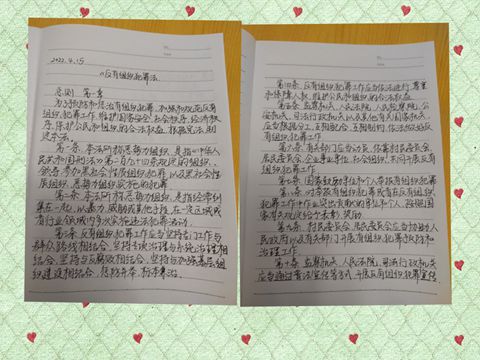 2022.4.15
《反有组织犯罪法》
总则 第一章
为了预防和惩治有组织犯罪，加强和规范反有
组织犯罪工作，维护国家安全、社会秩序、经济秩
序，保护公民和组织的合法权益，根据宪法，制
定本法。
第二条 本法所称有组织犯罪，是指《中华人
民共和国刑法》第二百九十四条规定的组织、
领导、参加黑社会性质组织犯罪，以及黑社会性
质组织、恶势力组织实施的犯罪。
本法所称恶势力组织，是指经常纠
集在一起，以暴力、威胁或其他手段，在一定区域或
者行业领域内多次实施违法犯罪活动
反有组织犯罪工作应当坚持专门工作与
群众路线相结合，坚持专项治理与系统治理相
结合，坚持与反腐败相结合，坚持与加强基层组
织建设相结合，惩防并举、标本兼治。
第四条 反有组织犯罪工作应当依法进行，尊重
和保障人权，维护公民和组织的合法权益。
第五条 监察机关、人民法院、人民检察院、公
安机关、司法行政机关以及其他有关国家机关，
应当根据分工，互相配合，互相制约，依法做好反
有组织犯罪工作
第六条 有关部门应当动员、依靠村民委员会、
居民委员会、企业事业单位、社会组织，共同开展反有
组织犯罪工作
第七条 国家鼓励单位和个人举报有组织犯罪
第八条 对举报有组织犯罪或者在反有组织犯罪
工作中作出突出贡献的单位和个人，按照国
家有关规定给予表彰、奖励
第九条 村民委员会、居民委员会应当协助人
民政府以及有关部门开展有组织犯罪预防和
治理工作
第十条 监察机关、人民法院、司法行政机关
应当通过普法宣传等方式，开展反有组织犯罪宣传